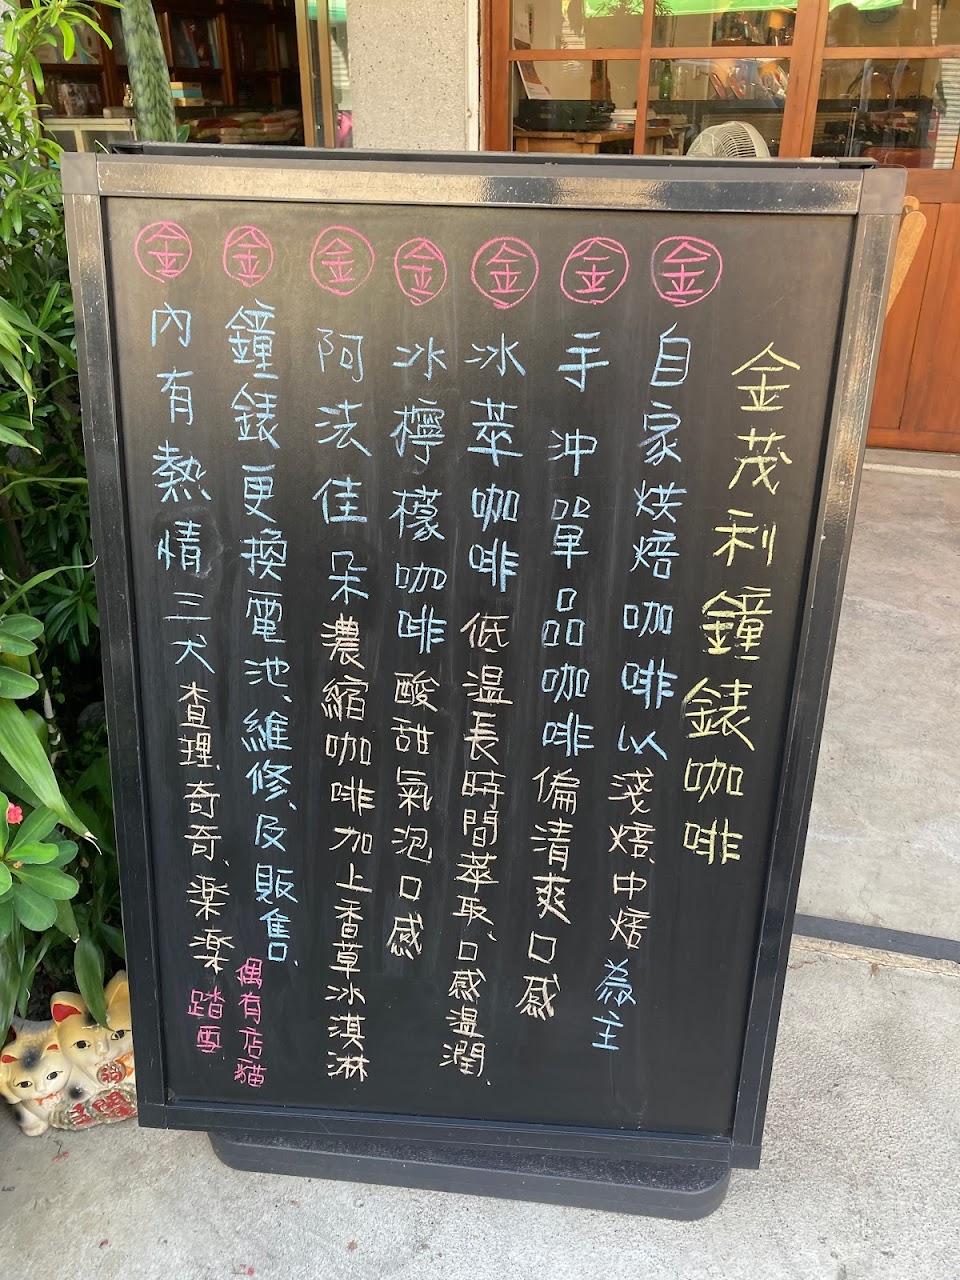 金茂利鐘錶咖啡
金 自家烘焙咖啡以淺焙、中焙為主
金 手沖單品咖啡 偏清爽口感
金 冰萃咖啡 低温長時間萃取、口感温潤、
金 冰檸檬咖啡 酸甜氣泡口感
金 阿法佳朵 濃縮咖啡加上香草冰淇淋
金 鐘錶更換電池、維修、及販售、
偶有店貓
金 內有熱情三犬 查理、奇奇、楽楽
踏雪